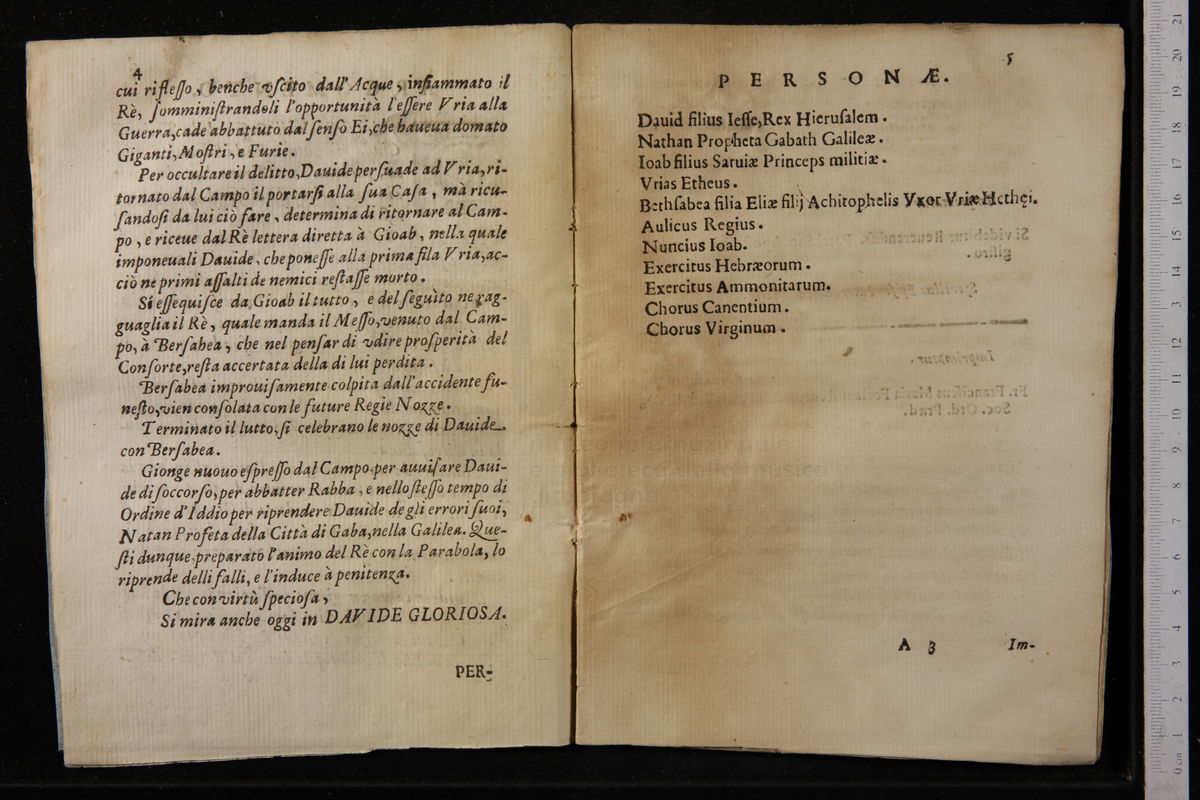 4
cui riflesso, benche vscito dall'Acque, infiammato il
Rè, somministrandoli l'opportunità l'essere Vria alla
Guerra, cade abbattuto dal senso Ei, che haueua domato
Giganti, Mostri, e Furie.
Per occultare il delitto, Dauide persuade ad Vria, ri-
tornato dal Campo il portarsi alla sua Casa, mà ricu-
sandosi da lui ciò fare, determina di ritornare al Cam-
po, e riceue dal Rè lettera diretta à Gioab, nella quale
imponeuali Dauide, che ponesse alla prima fila Vria, ac-
ciò ne primi assalti de nemici restasse morto.
Si essequisce da Gioab il tutto, e del seguito ne rag-
guaglia il Rè, quale manda il Messo, venuto dal Cam-
po, à Bersabea, che nel pensar di vdire prosperità del
Consorte, resta accertata della di lui perdita.
Bersabea improuisamente colpita dall'accidente fu-
nesto, vien consolata con le future Regie Nozze.
Terminato il lutto, si celebrano le nozze di Dauide
con Bersabea.
Gionge nuouo espresso dal Campo, per auuisare Daui-
de di soccorso, per abbatter Rabba, e nello stesso tempo di
Ordine d'Iddio per riprendere Dauide de gli errori suoi,
Natan Profeta della Città di Gaba, nella Galilea. Que-
sti dunque, preparato l'animo del Rè con la Parabola, lo
riprende delli falli, e l'induce à penitenza.
Che con virtù speciosa,
Si mira anche oggi in DAVIDE GLORIOSA.
PER-
5
PERSONÆ.
Dauid filius Iesse, Rex Hierusalem.
Nathan Propheta Gabath Galileæ.
Ioab filius Saruiæ Princeps militiæ.
Vrias Etheus.
Bethsabea filia Eliæ filij Achitophelis Vxor Vriæ Hethei.
Aulicus Regius.
Nuncius Ioab.
Exercitus Hebræorum.
Exercitus Ammonitarum.
Chorus Canentium.
Chorus Virginum.
A 3 Im-